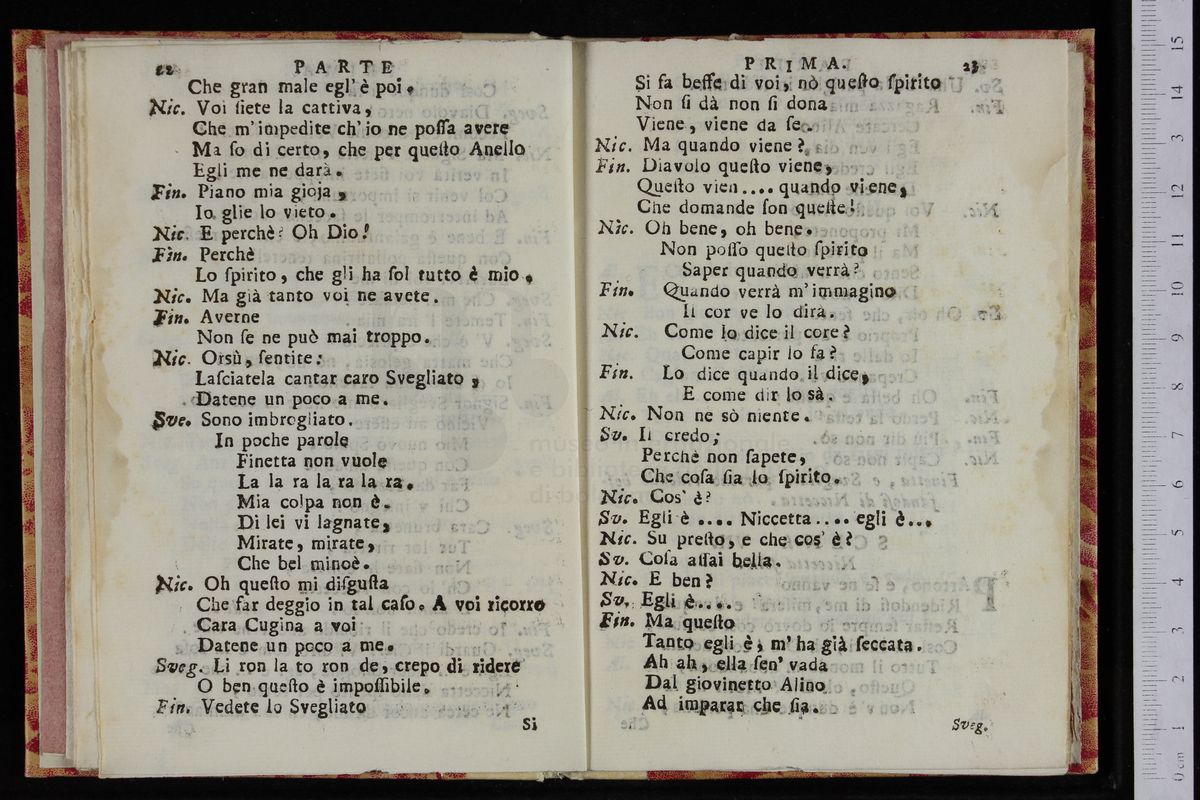 22 PARTE
Che gran male egl' è poi.
Nic. Voi ſiete la cattiva,
Che m' impedite ch' io ne poſſa avere
Ma ſo di certo, che per queſto Anello
Egli me ne darà.
Fin. Piano mia gioja,
Io glie lo vieto.
Nic. E perchè? Oh Dio!
Fin. Perchè
Lo ſpirito, che gli ha ſol tutto è mio.
Nic. Ma già tanto voi ne avete.
Fin. Averne
Non ſe ne può mai troppo.
Nic. Orsù, ſentite:
Laſciatela cantar caro Svegliato,
Datene un poco a me.
Sve. Sono imbrogliato.
In poche parole
Finetta non vuole
La la ra la ra la ra.
Mia colpa non è.
Di lei vi lagnate,
Mirate, mirate,
Che bel minoè.
Nic. Oh queſto mi diſguſta
Che far deggio in tal caſo. A voi ricorro
Cara Cugina a voi
Datene un poco a me.
Sveg. Li ron la to ron de, crepo di ridere
O ben queſto è impoſſibile.
Fin. Vedete lo Svegliato
Si
PRIMA. 23
Si fa beffe di voi, nò queſto ſpirito
Non ſi dà non ſi dona
Viene, viene da ſe.
Nic. Ma quando viene?
Fin. Diavolo queſto viene,
Queſto vien.... quando viene,
Che domande ſon queſte!
Nic. Oh bene, oh bene.
Non poſſo queſto ſpirito
Saper quando verrà?
Fin. Quando verrà m' immagino
Il cor ve lo dirà.
Nic. Come lo dice il core?
Come capir lo fa?
Fin. Lo dice quando il dice,
E come dir lo sà.
Nic. Non ne sò niente.
Sv. Il credo;
Perchè non ſapete,
Che coſa ſia lo ſpirito.
Nic. Cos' è?
Sv. Egli è .... Niccetta.... egli è...
Nic. Su preſto, e che cos' è?
Sv. Coſa aſſai bella.
Nic. E ben?
Sv. Egli è....
Fin. Ma queſto
Tanto egli è, m' ha già ſeccata.
Ah ah, ella ſen' vada
Dal giovinetto Alino
Ad imparar che ſia.
Sveg.